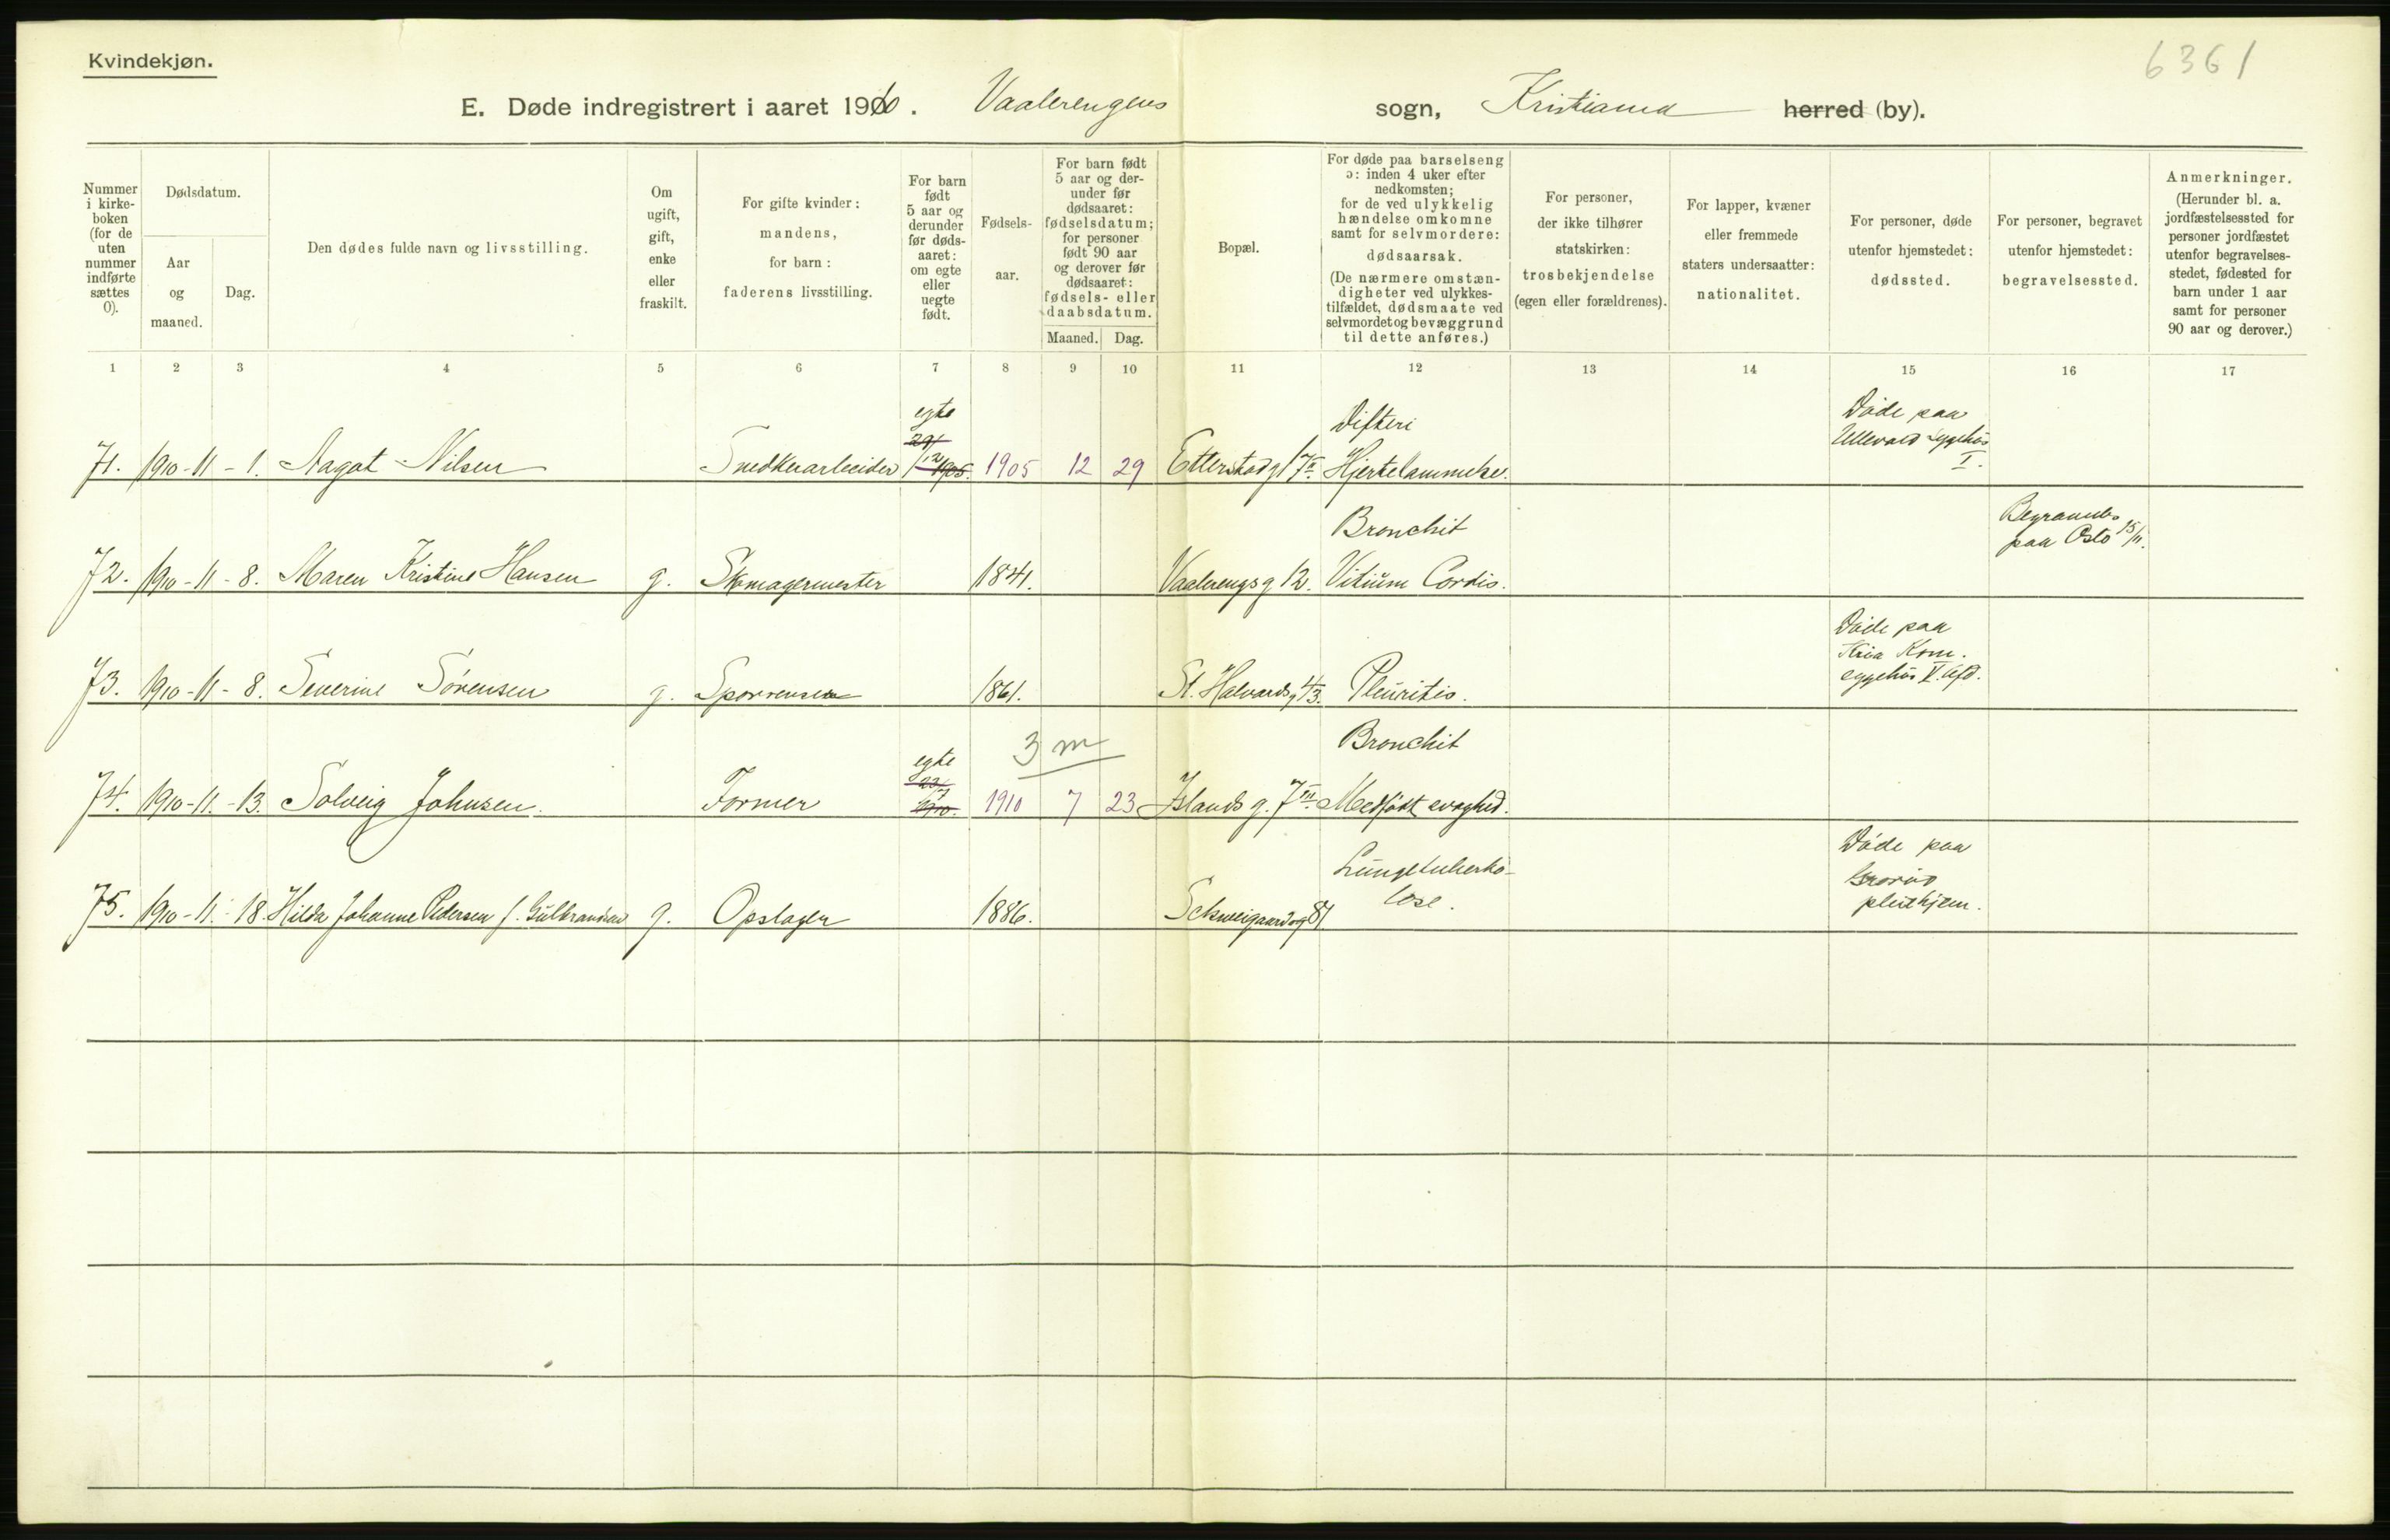 Kvindekjøn.
6361
E. Døde indregistrert i aaret 1910. Vaalerengens sogn, Kristiania herred (by).
Nummer i kirke- boken (for de uten nummer indførte sættes 0).
Dødsdatum.
Aar og maaned.
Dag.
Den dødes fulde navn og livsstilling.
Om ugift, gift, enke eller fraskilt.
For gifte kvinder: mandens, for barn: faderens livsstilling.
For barn født 5 aar og derunder før døds- aaret: om egte eller uegte født.
Fødsels- aar.
For barn født 5 aar og der- under før dødsaaret: fødselsdatum; for personer født 90 aar og derover før dødsaaret: fødsels- eller daabsdatum.
Maaned. Dag.
Bopæl.
For døde paa barselseng ɔ: inden 4 uker efter nedkomsten; for de ved ulykkelig hændelse omkomne samt for selvmordere: dødsaarsak. (De nærmere omstæn- digheter ved ulykkes- tilfældet, dødsmaate ved selvmordet og bevæggrund til dette anføres.)
For personer, der ikke tilhører statskirken: trosbekjendelse (egen eller forældrenes).
For lapper, kvæner eller fremmede staters undersaatter: nationalitet.
For personer, døde utenfor hjemstedet: dødssted.
For personer, begravet utenfor hjemstedet: begravelsessted.
Anmerkninger. (Herunder bl. a. jordfæstelsessted for personer jordfæstet utenfor begravelses- stedet, fødested for barn under 1 aar samt for personer 90 aar og derover.)
1 2 3 4 5 6 7 8 9 10 11 12 13 14 15 16 17
71. 1910-11-1. Aagot Nilsen Snedkerarbeider egte 29/12 1905. 1905 12 29 Etterstadg 17 II Difteri Hjertelammelse. Døde paa Ullevaal sygehus I.
72. 1910-11-8. Maren Kristine Hansen g. Skomagermester 1841. Vaalerengsg 12. Bronchit Vitium Cordis. Begravedes paa Oslo 15/11.
73. 1910-11-8. Severine Sørensen g. 1861. St. Halvardsg 43. Pleuritis. Døde paa Kria Kom. sygehus V. Afd.
3 m
74. 1910-11-13. Solveig Johnsen. Former egte 23/7 1910. 1910 7 23 Islands g. 7 III Bronchit Medfødt svaghed.
75. 1910-11-18. Hilda Johanne Pedersen f. Gulbrandsen g. Opslager 1886. Schweigaardsg 81 Lungetuberku- lose. Døde paa Grorud pleiehjem.